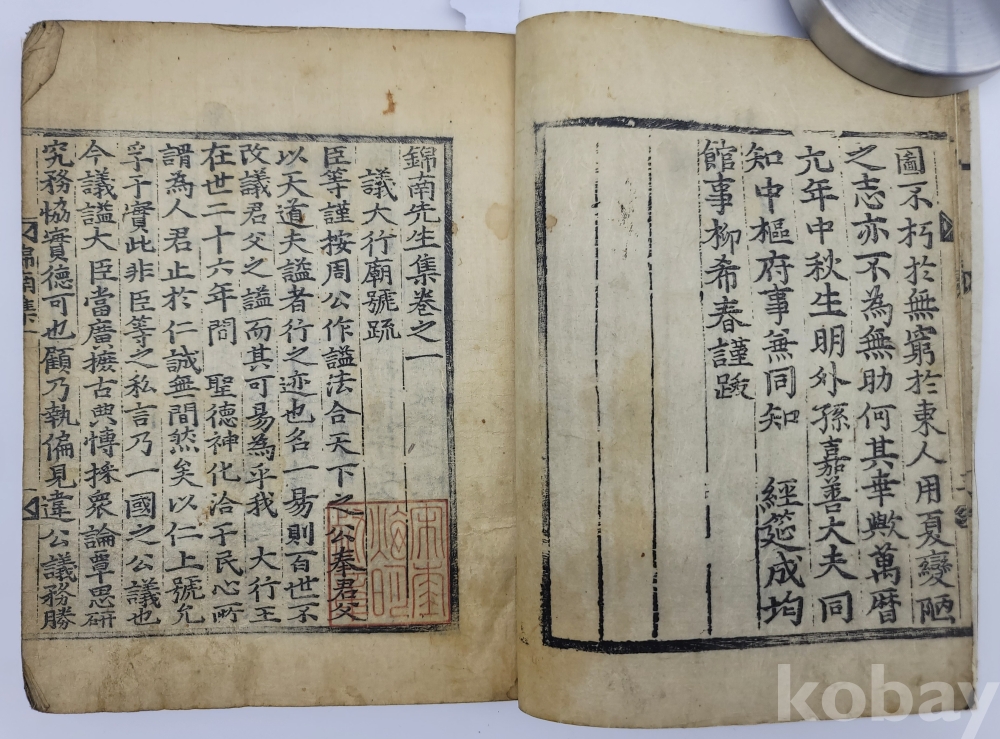 圖不朽於無窮於東人用夏變陋
之志亦不為無助何其幸歟萬曆
元年中秋生明外孫嘉善大夫同
知中樞府事兼同知 經筵成均
館事柳希春謹跋
錦南先生集卷之一
議大行廟號疏
臣等謹按周公作謚法合天下之公奉君父
以天道夫謚者行之迹也名一易則百世不
改議君父之謚而其可易為乎我 大行王
在世二十六年間 聖德神化洽于民心所
謂為人君止於仁誠無間然矣以仁上號允
孚于實此非臣等之私言乃一國之公議也
今議謚大臣當廣摭古典博採衆論覃思研
究務協實德可也顧乃執偏見違公議務勝
錦南集一
kobay